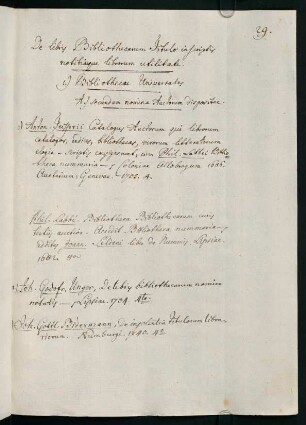 29.
De libris Bibliothecarum titulo inscriptis
notitiaque librorum utilitati
Bibliothecae Universales
A) secundum nomina Auctorum dispositae.
Anton. Teisserii Catalogus Auctorum qui librorum
catalogos, indices, bibliothecas, virorum litteratorum
elogia scriptis consignarunt, cum Phil. Labbei Biblio
theca nummaria Coloniae Allobrogum 1686.
Auctarium: Genevae. 1705. 4.
Phil. Labbei. Bibliotheca Bibliothecarum
auctior. Accedit Bibliotheca nummaria
Joann. Seldeni liber de Nummis. Lipsiae.
1682.
Joh. Godofr. Unger, De libris bibliothecarum nomine
notatis Lipsiae. 1704 4to.
Joh. Gottl. Bidermann, De titulorum libro
rum. 4to.